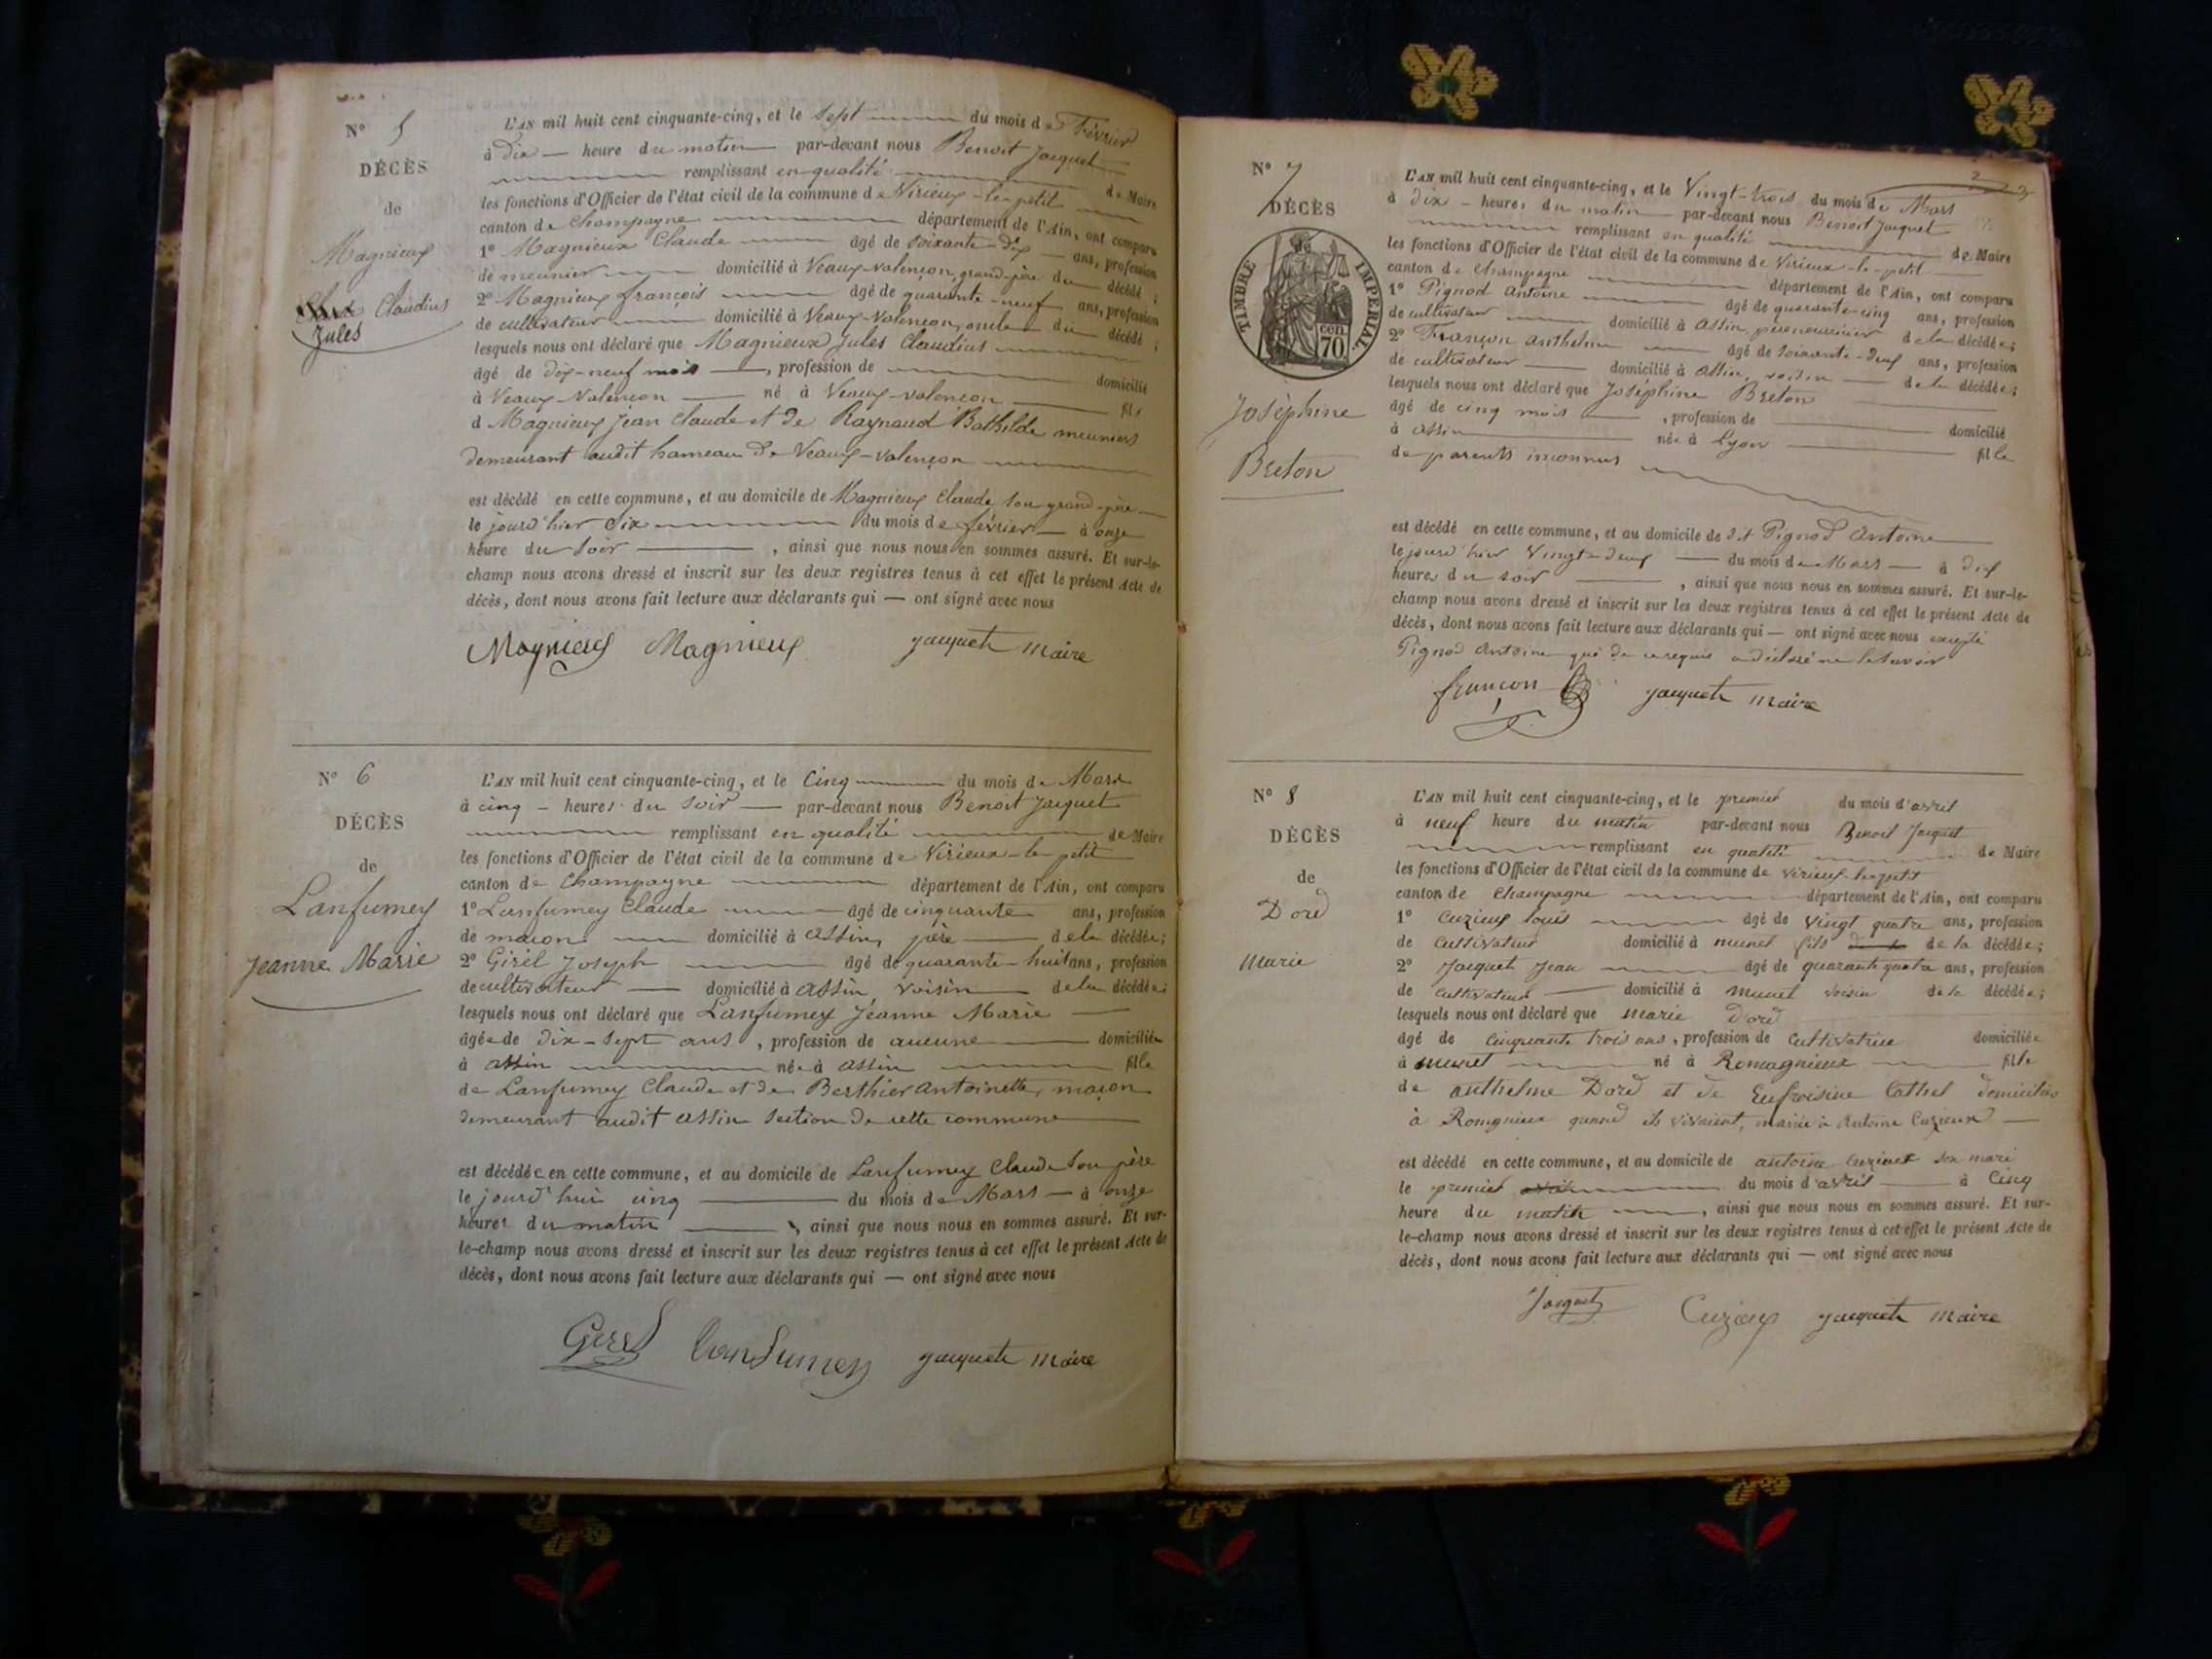 N° 5
DÉCÈS
de
Magnieux
Claudius
Jules
L'AN mil huit cent cinquante-cinq, et le sept du mois de Février
à dix — heure du matin par-devant nous Benoit Jacquet
remplissant en qualité de Maire
les fonctions d'Officier de l'état civil de la commune de Virieux-le-petit
canton de Champagne département de l'Ain, ont comparu
1° Magnieux Claude âgé de soixante-dix ans, profession
de meunier domicilié à Veaux-valençon, grand-père du décédé ;
2° Magnieux françois âgé de quarante-neuf ans, profession
de cultivateur domicilié à Veaux-Valençon, oncle du décédé ;
lesquels nous ont déclaré que Magnieux Jules Claudius
âgé de dix-neuf mois —, profession de domicilié
à Veaux-Valençon né à Veaux-valençon fils
d Magnieux Jean Claude et de Raynaud Bathilde meuniers
demeurant audit hameau de Veaux-valençon
est décédé en cette commune, et au domicile de Magnieux Claude son grand-père
le jourd'hier six du mois de février — à onze
heure du soir , ainsi que nous nous en sommes assuré. Et sur-le-
champ nous avons dressé et inscrit sur les deux registres tenus à cet effet le présent Acte de
décès, dont nous avons fait lecture aux déclarants qui — ont signé avec nous
Magnieux Magnieux Jacquet maire
N° 6
DÉCÈS
de
Lanfumey
Jeanne Marie
L'AN mil huit cent cinquante-cinq, et le Cinq du mois de Mars
à cinq — heures du soir — par-devant nous Benoit Jacquet
remplissant en qualité de Maire
les fonctions d'Officier de l'état civil de la commune de Virieux-le-petit
canton de Champagne département de l'Ain, ont comparu
1° Lanfumey Claude âgé de cinquante ans, profession
de maçon domicilié à Assin, père de la décédée;
2° Girel Joseph âgé de quarante-huit ans, profession
de cultivateur domicilié à Assin, voisin de la décédée;
lesquels nous ont déclaré que Lanfumey Jeanne Marie
âgée de dix-sept ans , profession de aucune domiciliée
à assin née à assin fille
de Lanfumey Claude et de Berthier Antoinette, maçon
demeurant audit assin section de cette commune
est décédée en cette commune, et au domicile de Lanfumey Claude son père
le jourd'hui cinq du mois de Mars — à onze
heures du matin , ainsi que nous nous en sommes assuré. Et sur-
le-champ nous avons dressé et inscrit sur les deux registres tenus à cet effet le présent Acte de
décès, dont nous avons fait lecture aux déclarants qui — ont signé avec nous
Girel Lanfumey Jacquet maire
N° 7
DÉCÈS
de
TIMBRE IMPERIAL.
70 cen
Joséphine
Breton
L'AN mil huit cent cinquante-cinq, et le Vingt-trois du mois de Mars
à dix — heures du matin par-devant nous Benoit Jacquet
remplissant en qualité de Maire
les fonctions d'Officier de l'état civil de la commune de Virieux-le-petit
canton de Champagne département de l'Ain, ont comparu
1° Pignod Antoine âgé de quarante-cinq ans, profession
de cultivateur domicilié à Assin, père nourricier de la décédée;
2° Françon Anthelme âgé de soixante-deux ans, profession
de cultivateur domicilié à Assin, voisin de la décédée;
lesquels nous ont déclaré que Joséphine Breton
âgé de cinq mois , profession de domicilié
à assin née à Lyon fille
de parents inconnus
est décédé en cette commune, et au domicile de dit Pignod Antoine
le jourd'hier Vingt-deux du mois de Mars — à dix
heures du soir , ainsi que nous nous en sommes assuré. Et sur-le-
champ nous avons dressé et inscrit sur les deux registres tenus à cet effet le présent Acte de
décès, dont nous avons fait lecture aux déclarants qui — ont signé avec nous excepté
Pignod Antoine qui de ce requis a déclaré ne le savoir
françon Jacquet maire
N° 8
DÉCÈS
de
Dord
Marie
L'AN mil huit cent cinquante-cinq, et le premier du mois d'avril
à neuf heure du matin par-devant nous Benoit Jacquet
remplissant en qualité de Maire
les fonctions d'Officier de l'état civil de la commune de Virieux-le-petit
canton de Champagne département de l'Ain, ont comparu
1° Cuzieux Louis âgé de vingt quatre ans, profession
de cultivateur domicilié à munet fils de la décédée;
2° Jacquet Jean âgé de quarante quatre ans, profession
de cultivateur domicilié à Munet voisin de la décédée;
lesquels nous ont déclaré que Marie Dord
âgé de cinquante trois ans, profession de cultivatrice domiciliée
à munet né à Romagnieux fille
de anthelme Dord et de Eufroisine Cathel domiciliés
à Romagnieux quand ils vivaient, mariée à Antoine Cuzieux
est décédé en cette commune, et au domicile de antoine Cuzieux son mari
le premier du mois d'avril à Cinq
heure du matin , ainsi que nous nous en sommes assuré. Et sur-
le-champ nous avons dressé et inscrit sur les deux registres tenus à cet effet le présent Acte de
décès, dont nous avons fait lecture aux déclarants qui — ont signé avec nous
Jacquet Cuzieux Jacquet maire